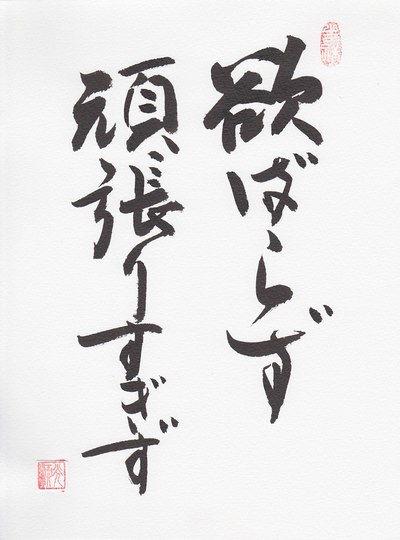 欲ばらず
頑張りすぎず